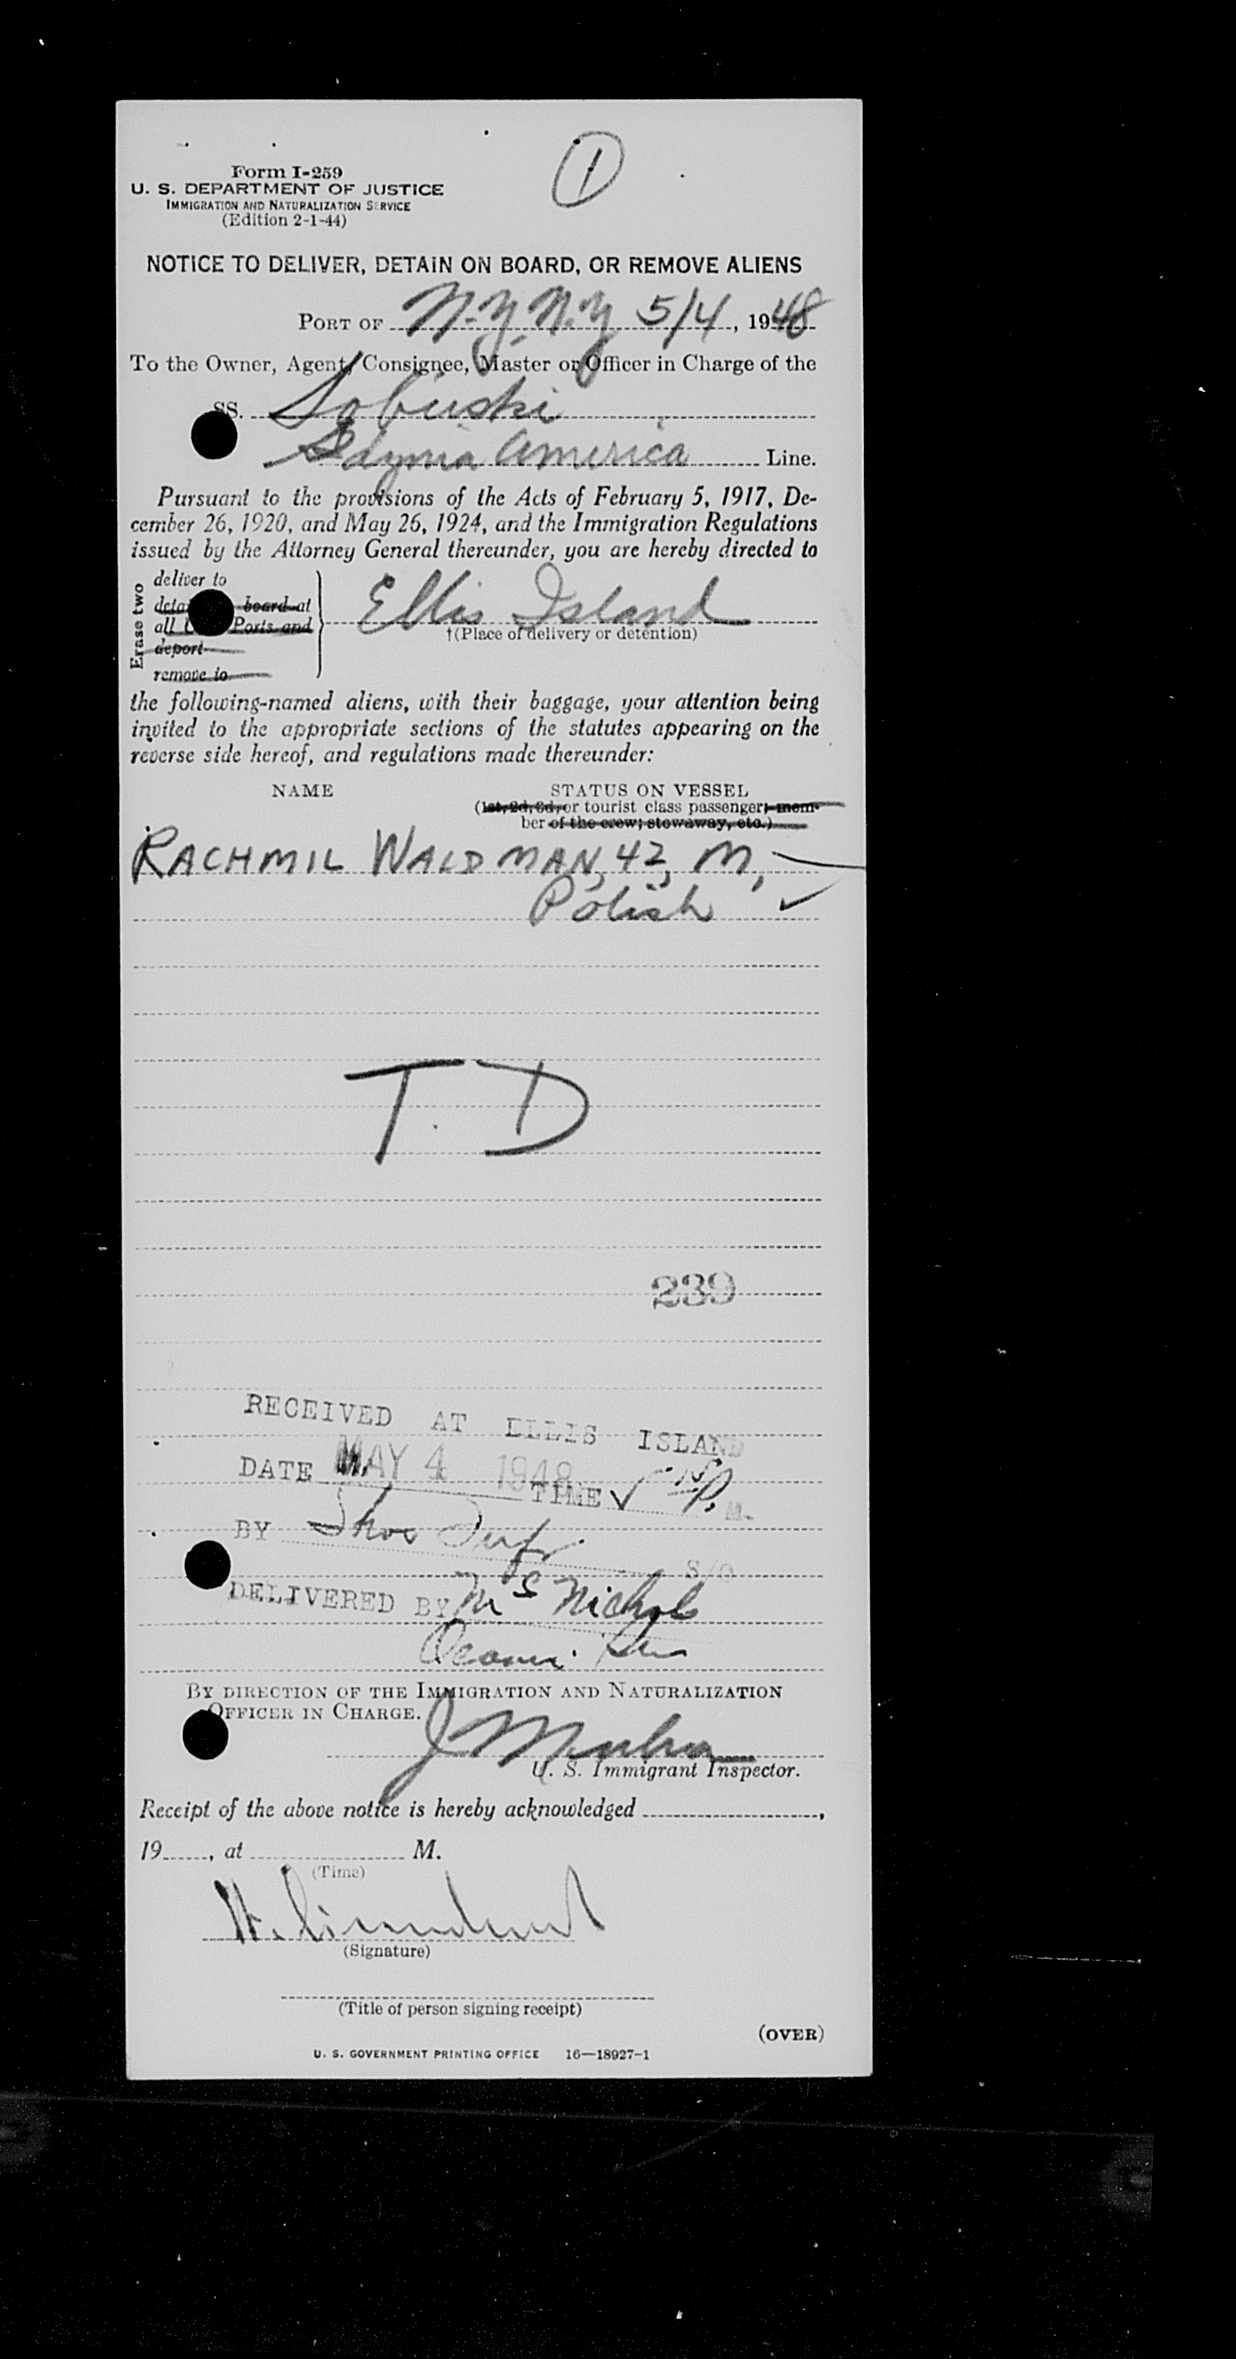 1
Form I-259
U. S. DEPARTMENT OF JUSTICE
IMMIGRATION AND NATURALIZATION SERVICE
(Edition 2-1-44)
NOTICE TO DELIVER, DETAIN ON BOARD, OR REMOVE ALIENS
PORT OF N.Y. N.Y. 5/4, 1948
To the Owner, Agent, Consignee, Master or Officer in Charge of the
SS. Sobieski
Gdynia America Line.
Pursuant to the provisions of the Acts of February 5, 1917, De-
cember 26, 1920, and May 26, 1924, and the Immigration Regulations
issued by the Attorney General thereunder, you are hereby directed to
Erase two
deliver to
board at
all Ports and
deport
remove to
Ellis Island
†(Place of delivery or detention)
the following-named aliens, with their baggage, your attention being
invited to the appropriate sections of the statutes appearing on the
reverse side hereof, and regulations made thereunder:
NAME STATUS ON VESSEL
(1st, 2d, 3d, or tourist class passenger; mem-
ber of the crew; stowaway, etc.)
RACHMIL WALDMAN, 42, M,
Polish ✓
T. D
239
RECEIVED AT ELLIS ISLAND
DATE MAY 4 1948 TIME P. M.
BY
S/O
DELIVERED BY Mc Nichols
BY DIRECTION OF THE IMMIGRATION AND NATURALIZATION
OFFICER IN CHARGE.
U. S. Immigrant Inspector.
Receipt of the above notice is hereby acknowledged ,
19 , at M.
(Time)
(Signature)
(Title of person signing receipt)
(OVER)
U. S. GOVERNMENT PRINTING OFFICE 16—18927-1